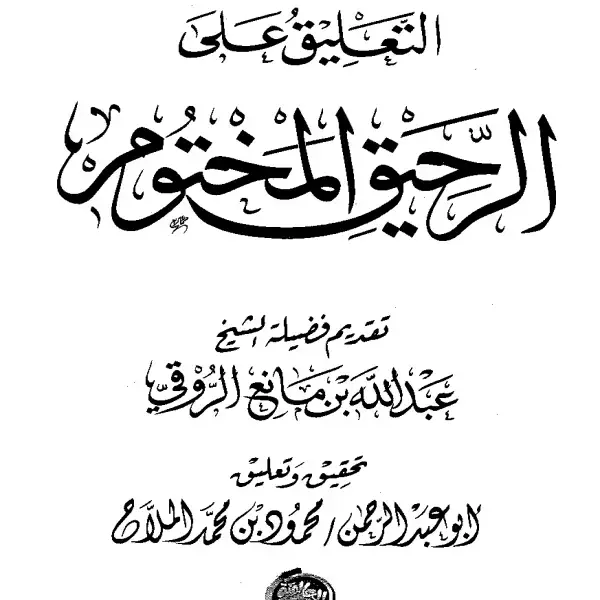 التَّعْلِيقُ عَلَى
الرَّحِيقِ المَخْتُومِ
تقديم فضيلة الشيخ
عَبْدِ اللهِ بْنِ مَانِعٍ الرُّوقِي
تحقيق وتعليق
أبو عبد الرحمن / محمود بن محمد الملاح